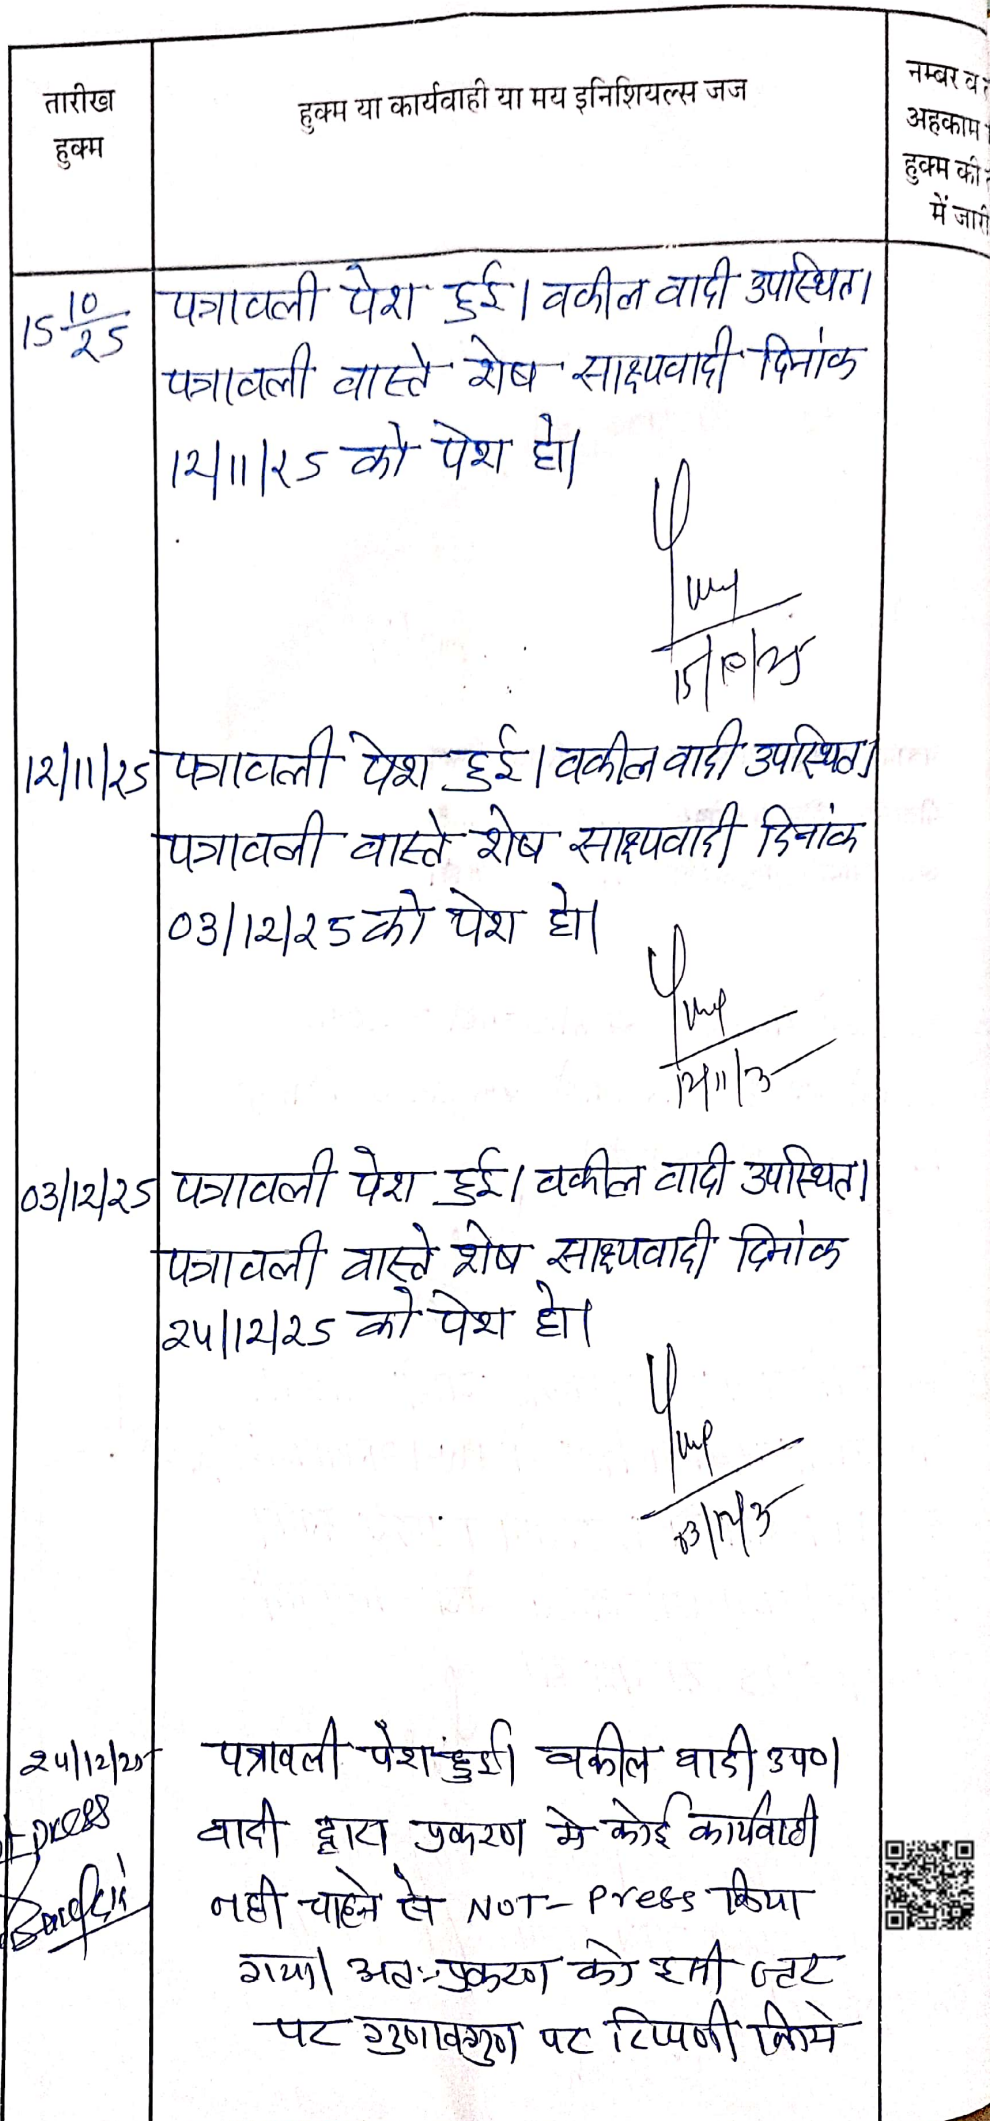 तारीख
हुक्म
हुक्म या कार्यवाही या मय इनिशियल्स जज
नम्बर व
अहकाम
हुक्म की
में जारी
15 10/25 पत्रावली पेश हुई। वकील वादी उपस्थित।
पत्रावली वास्ते शेष साक्ष्यवादी दिनांक
12/11/25 को पेश हो।
15/10/25
12/11/25 पत्रावली पेश हुई। वकील वादी उपस्थित।
पत्रावली वास्ते शेष साक्ष्यवादी दिनांक
03/12/25 को पेश हो।
12/11/25
03/12/25 पत्रावली पेश हुई। वकील वादी उपस्थित।
पत्रावली वास्ते शेष साक्ष्यवादी दिनांक
24/12/25 को पेश हो।
03/12/25
24/12/25 पत्रावली पेश हुई। वकील वादी उप०।
press वादी द्वारा प्रकरण मे कोई कार्यवाही
नही चाहने से NOT-Press किया
गया। अतः प्रकरण को इसी स्तर
पर गुणावगुण पर टिप्पणी किये